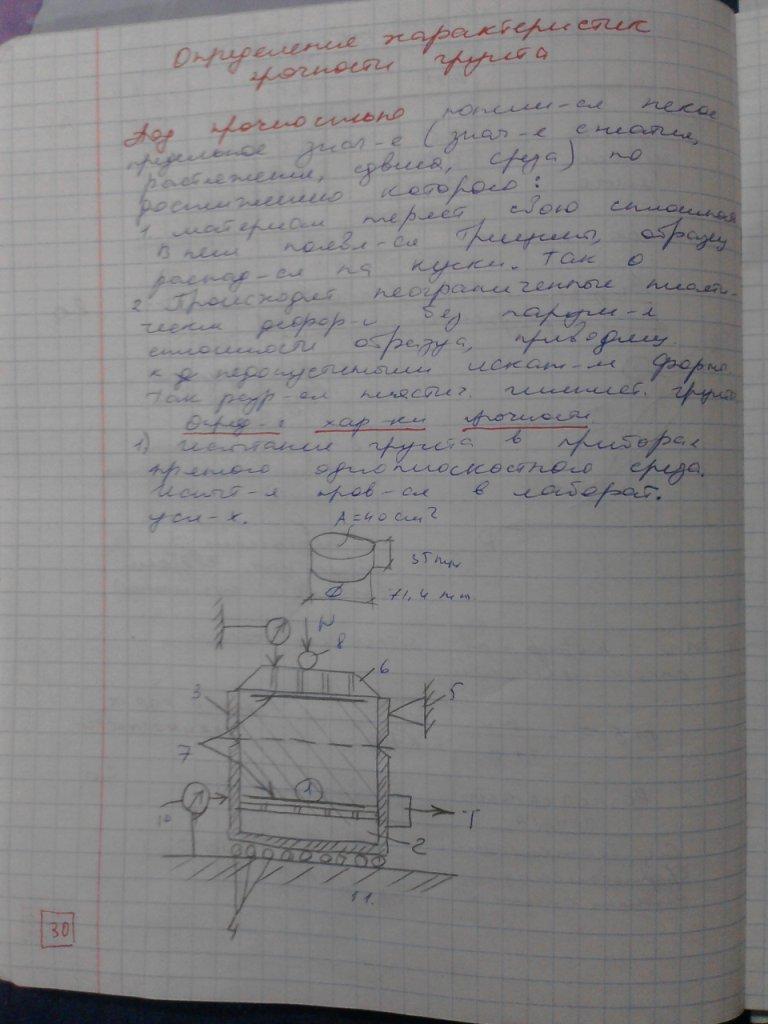 Определения характеристик
прочности грунта
Под прочностью поним-ся некое
предельное знач-е (знач-е сжатия,
растяжения, сдвига, среза) по
достижению которого:
1 материал теряет свою сплошность
В нем появл-ся трещины, образец
распад-ся на куски. Так о
2 Происходят неограниченные пласти-
ческие дефор-и без наруш-я
сплошности образца, приводящ.
к недопустимыми искаж-м формы.
Так разр-ся пластич. глинист. грунты
Опред-е хар-ки прочности
1) Испытание грунта в приборах
прямого одноплоскостного среза.
Испыт-я пров-ся в лаборат.
усл-х.
A=40 cm²
35 mm
Ф 71,4 mm
N
8
6
3
5
7
1
10
T
2
11.
4
30